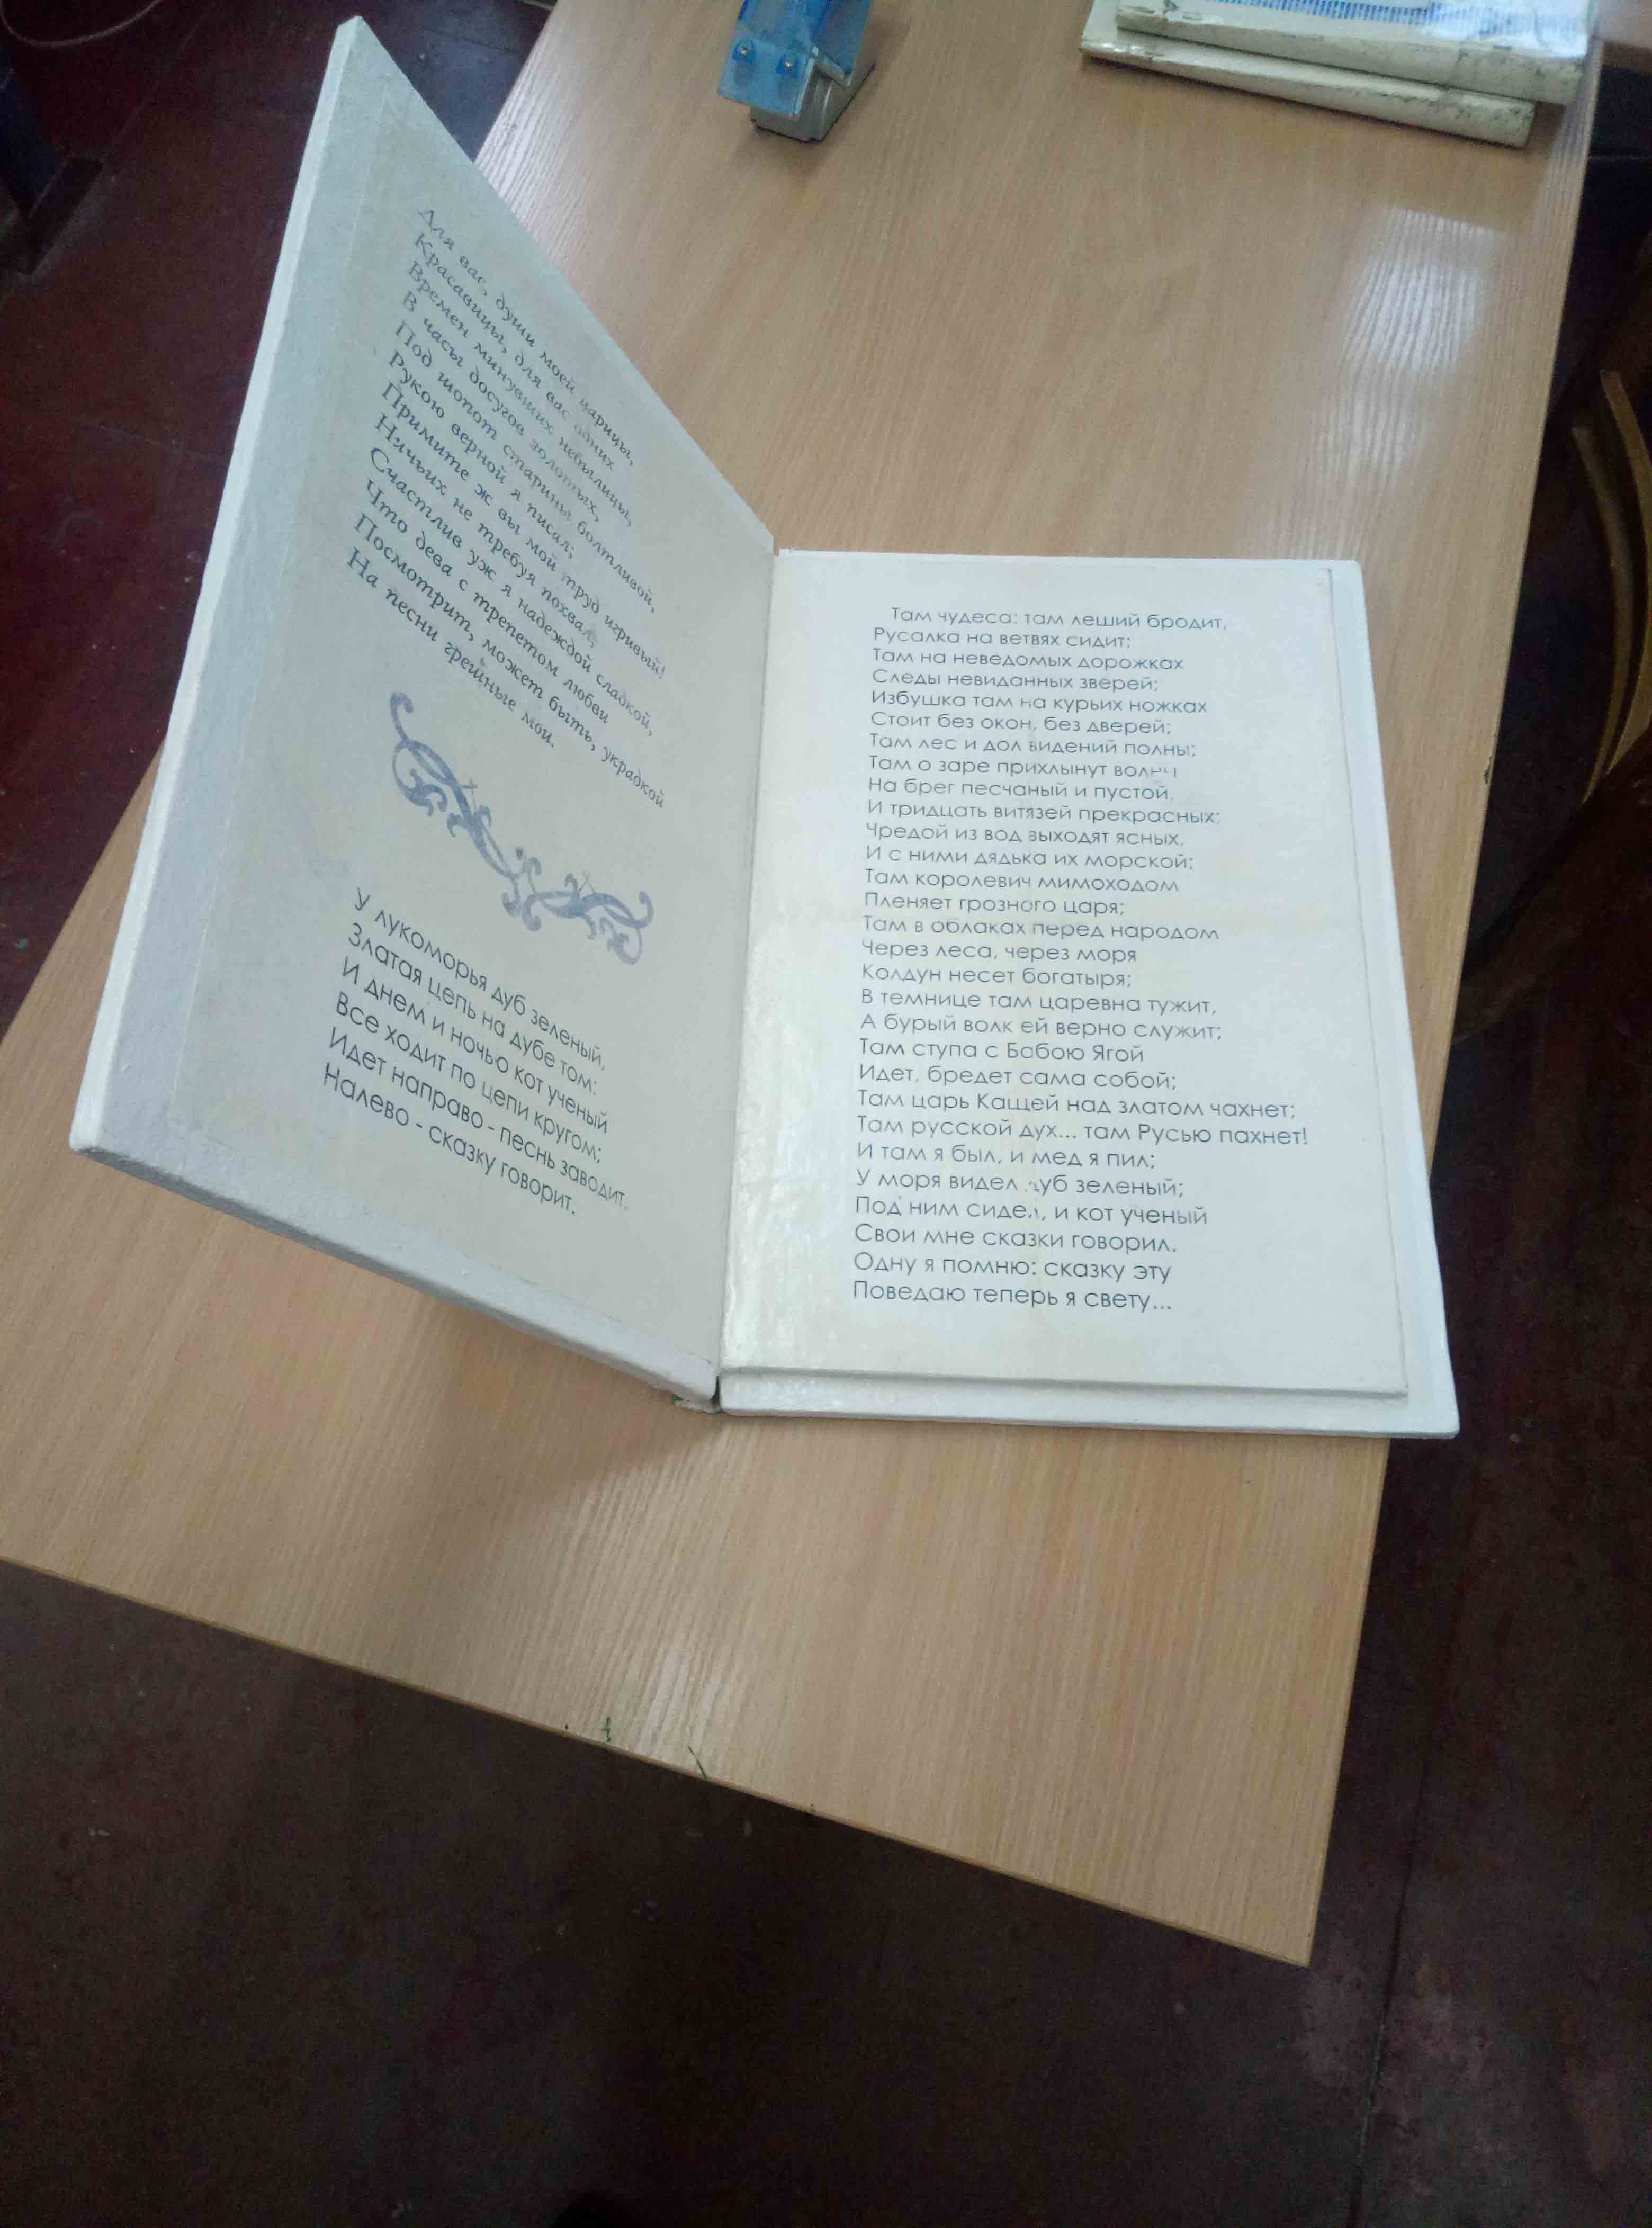 Для вас, души моей царицы,
Красавицы, для вас одних
Времен минувших небылицы,
В часы досугов золотых,
Под шопот старины болтливой,
Рукою верной я писал;
Примите ж вы мой труд игривый!
Ничьих не требуя похвал,
Счастлив уж я надеждой сладкой,
Что дева с трепетом любви
Посмотрит, может быть, украдкой
На песни грешные мои.
У лукоморья дуб зеленый,
Златая цепь на дубе том:
И днем и ночью кот ученый
Все ходит по цепи кругом;
Идет направо - песнь заводит,
Налево - сказку говорит.
Там чудеса: там леший бродит,
Русалка на ветвях сидит;
Там на неведомых дорожках
Следы невиданных зверей;
Избушка там на курьих ножках
Стоит без окон, без дверей;
Там лес и дол видений полны;
Там о заре прихлынут волны
На брег песчаный и пустой,
И тридцать витязей прекрасных;
Чредой из вод выходят ясных,
И с ними дядька их морской;
Там королевич мимоходом
Пленяет грозного царя;
Там в облаках перед народом
Через леса, через моря
Колдун несет богатыря;
В темнице там царевна тужит,
А бурый волк ей верно служит;
Там ступа с Бабою Ягой
Идет, бредет сама собой;
Там царь Кащей над златом чахнет;
Там русской дух... там Русью пахнет!
И там я был, и мед я пил;
У моря видел дуб зеленый;
Под ним сидел, и кот ученый
Свои мне сказки говорил.
Одну я помню: сказку эту
Поведаю теперь я свету...